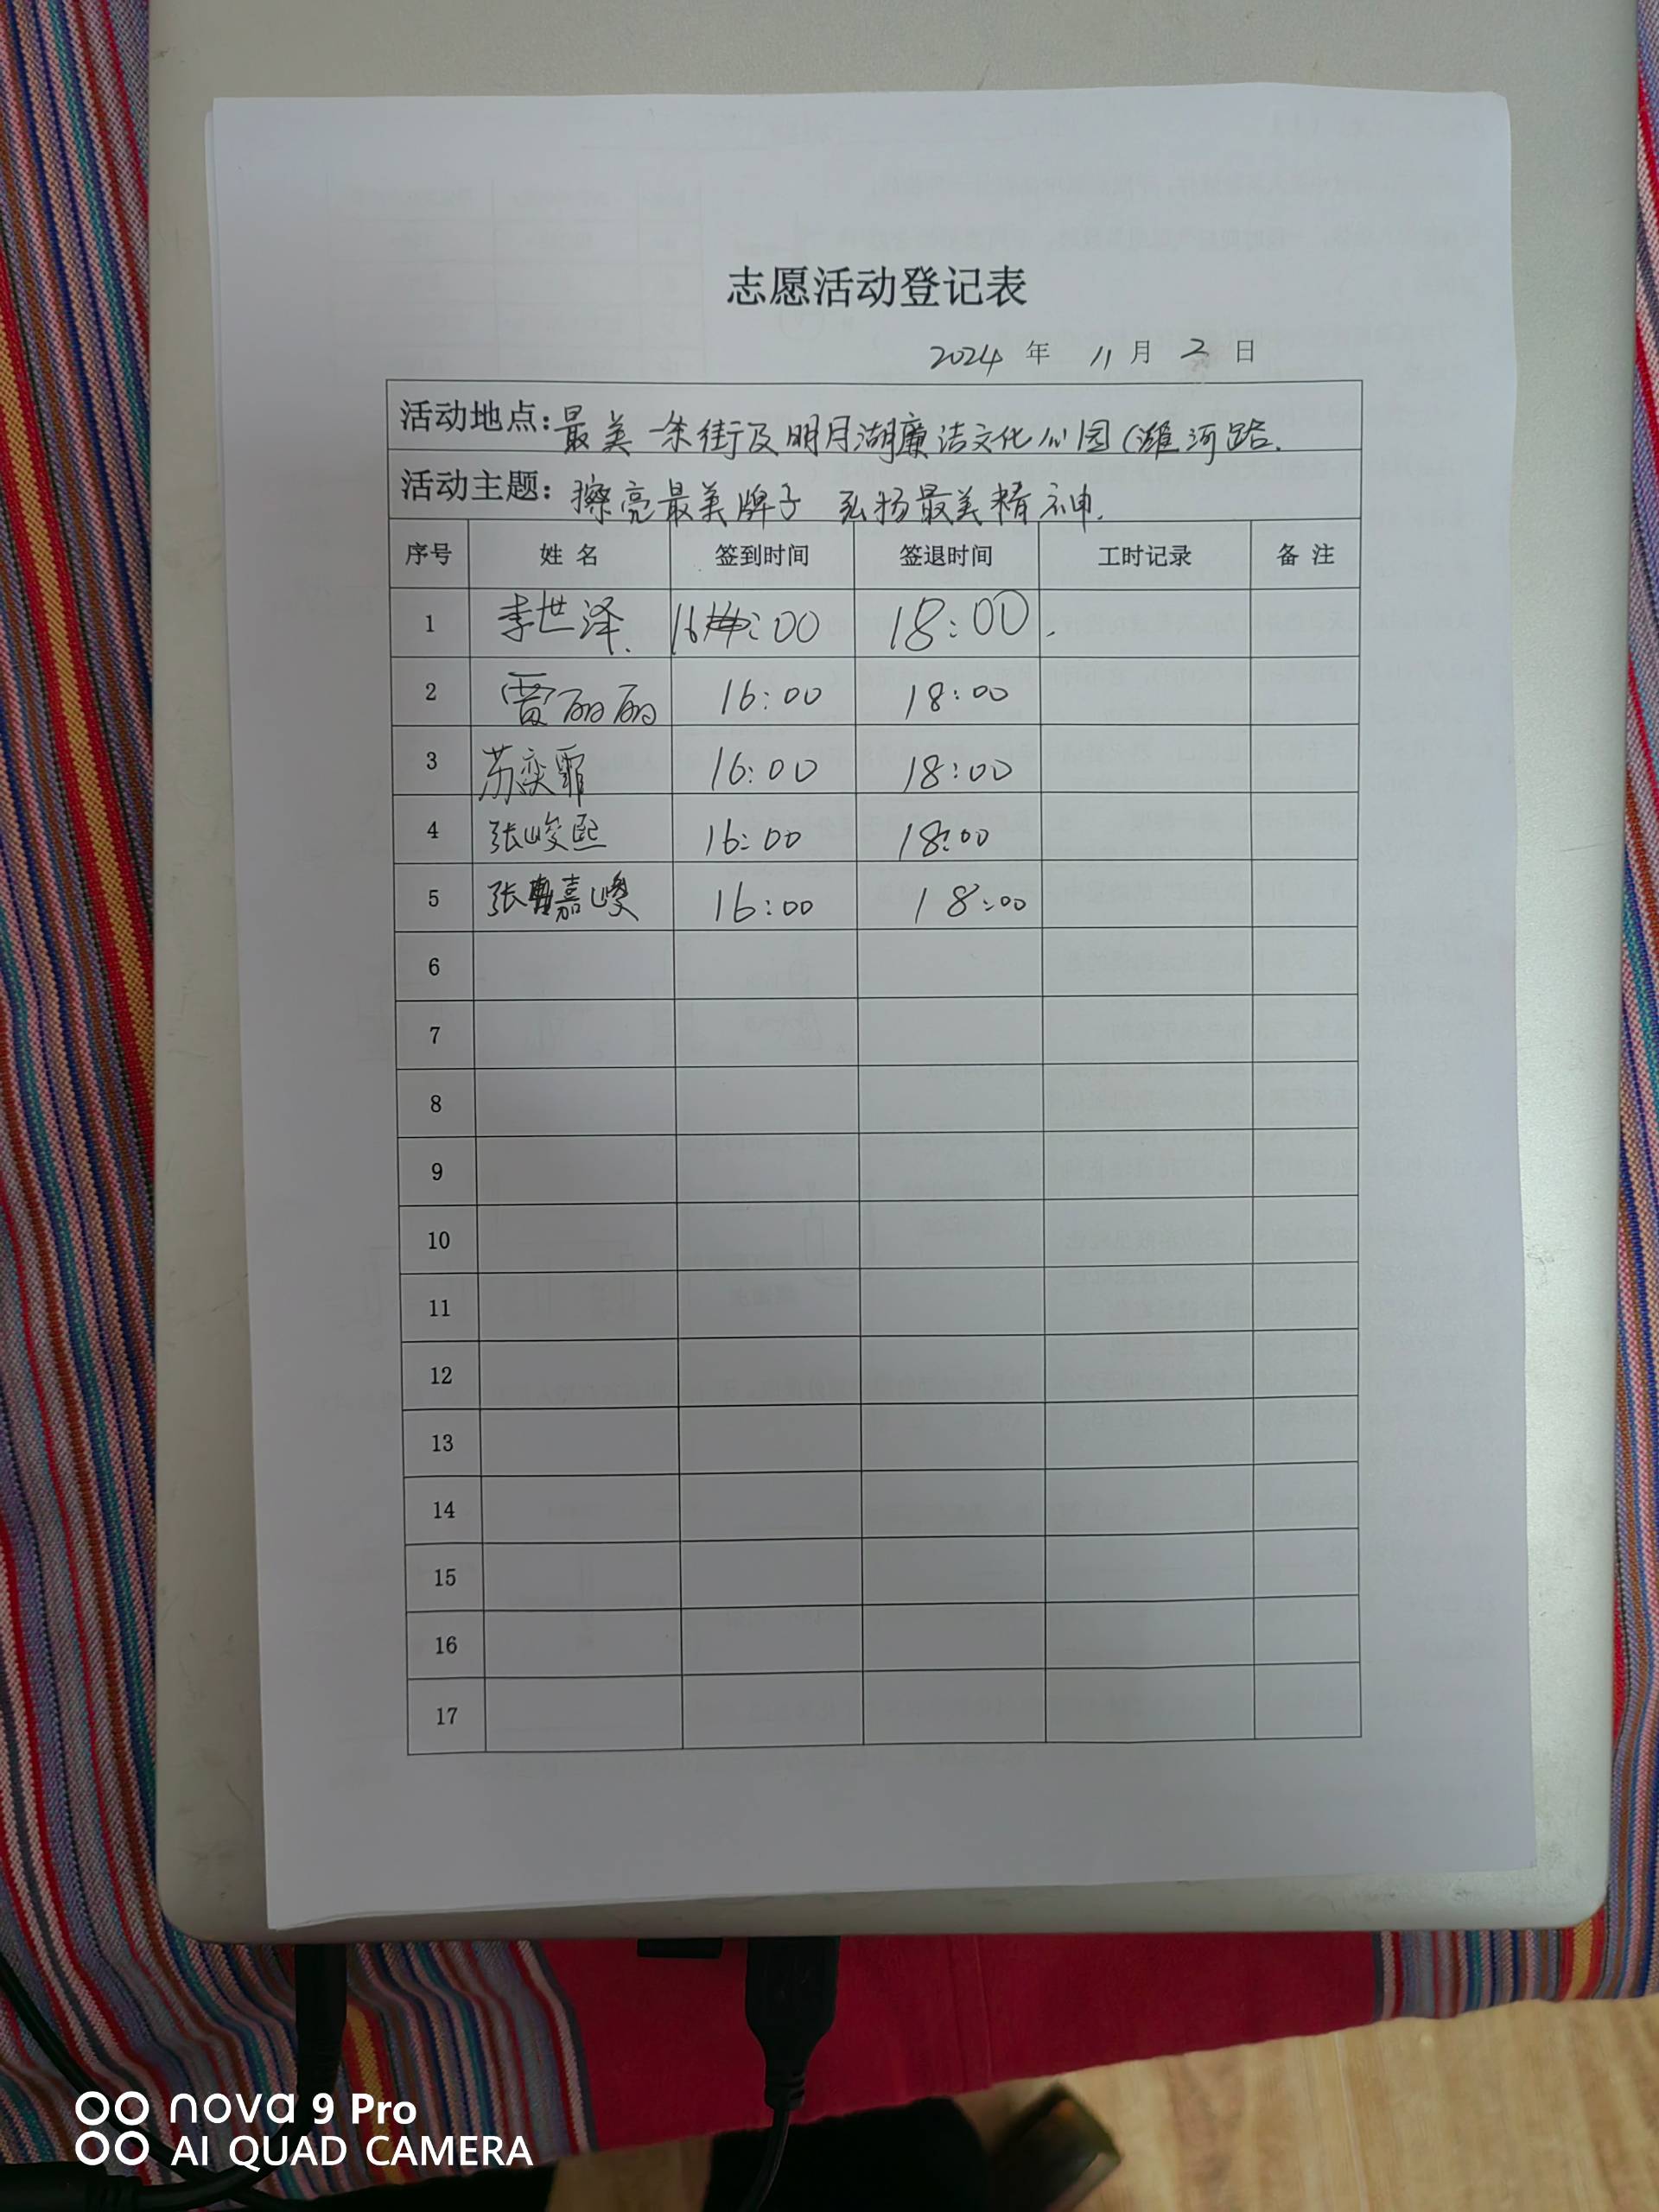 志愿活动登记表
2024 年 11 月 2 日
活动地点:最美一条街及明月湖廉洁文化公园(潍河路.
活动主题:擦亮最美牌子 弘扬最美精神.
序号 姓 名 签到时间 签退时间 工时记录 备 注
1 李世泽. 16:00 18:00.
2 雷丽丽 16:00 18:00
3 苏奕霏 16:00 18:00
4 张峻熙 16:00 18:00
5 张嘉峻 16:00 18:00
6
7
8
9
10
11
12
13
14
15
16
17
nova 9 Pro
AI QUAD CAMERA